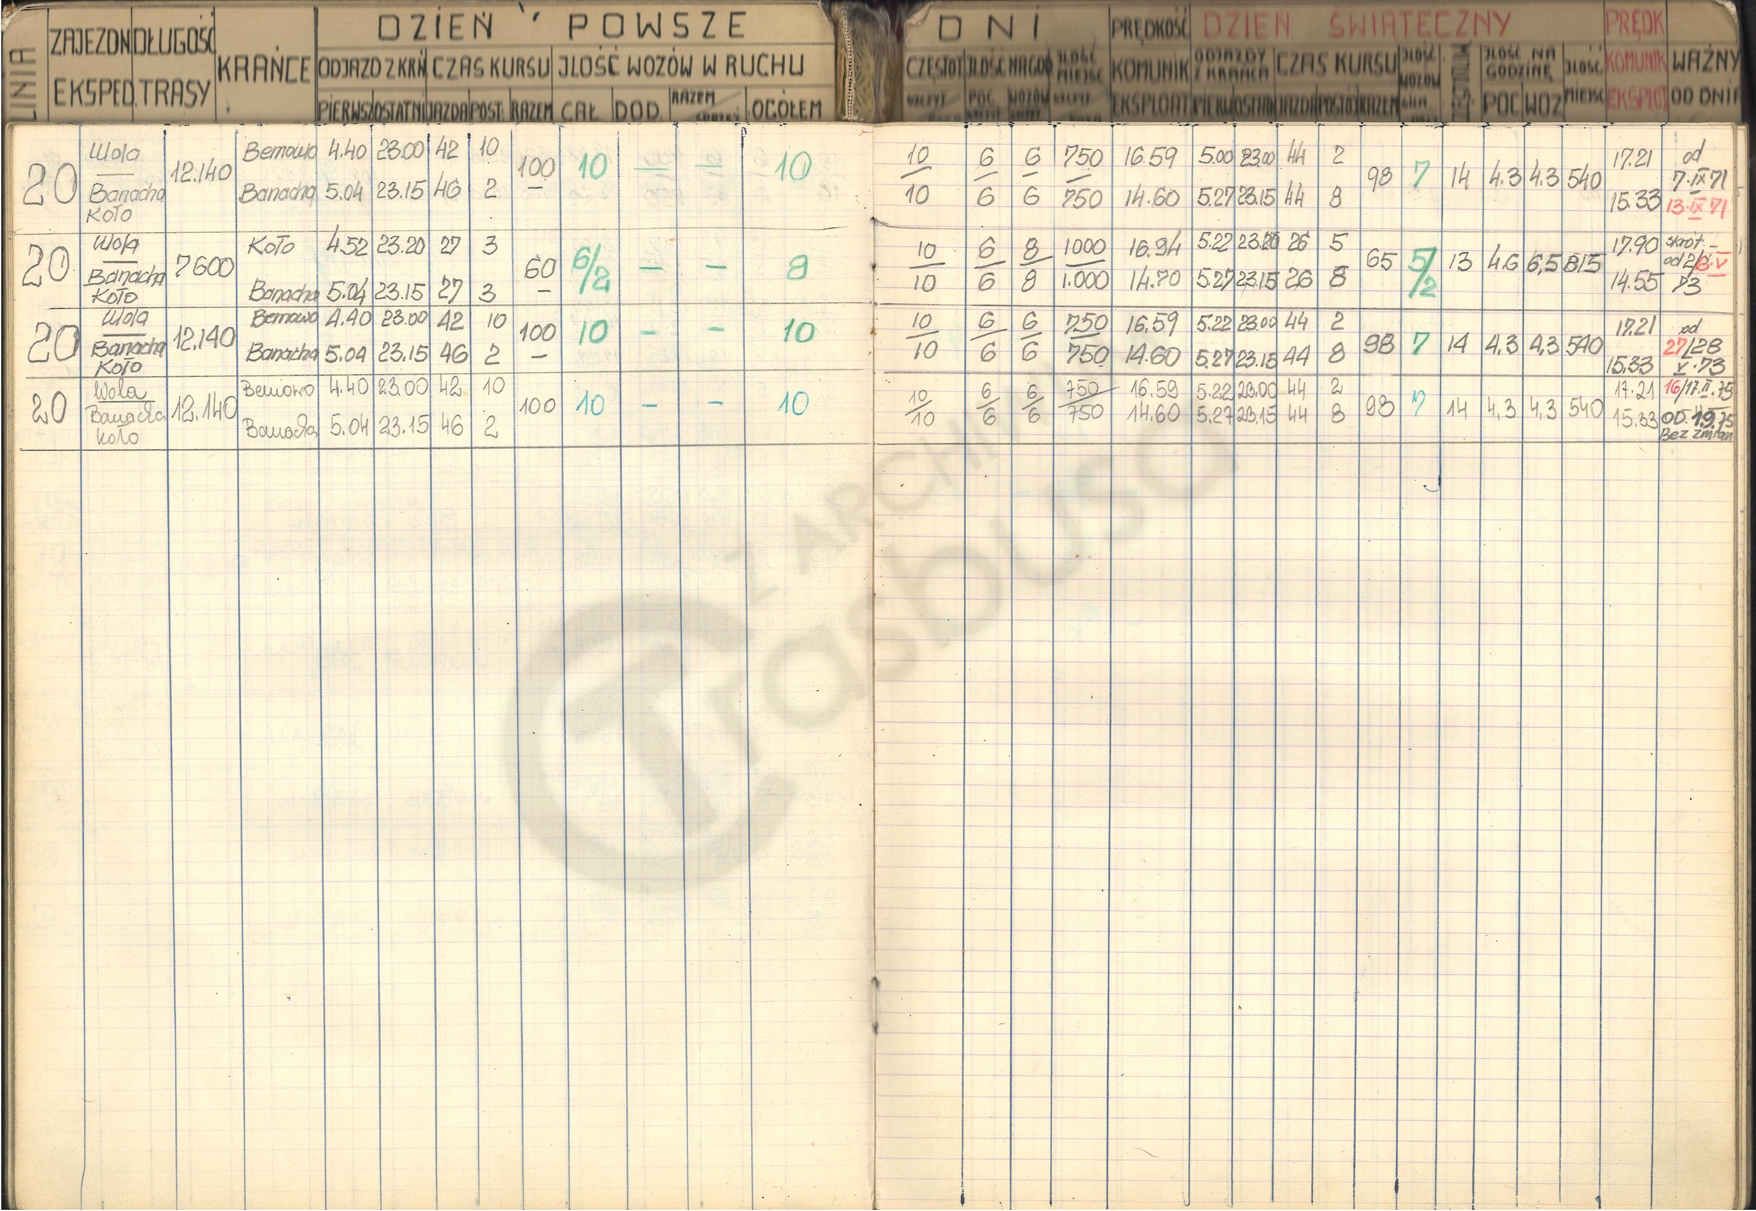 LINIA
ZAJEZDN. DŁUGOŚĆ KRAŃCE DZIEŃ POWSZE DNI PRĘDKOŚĆ DZIEŃ ŚWIATECZNY PRĘDK WAŻNY
EKSPED. TRASY ODJAZD Z KRAŃ CZAS KURSU JLOŚĆ WOZÓW W RUCHU CZĘSTOT JLOŚĆ NA GOD JLOŚĆ MIEJSC KOMUNIK ODJAZDY Z KRAŃCA CZAS KURSU JLOŚĆ WOZÓW JLOŚĆ NA GODZINĘ JLOŚĆ MIEJSC KOMUNIK OD DNIA
PIERWSZ OSTATNI JAZDA POST. RAZEM CAŁ. DOD. RAZEM OGÓŁEM POC. WOZÓW EKSPLOAT PIERW OSTATN JAZDA POSTÓJ RAZEM POC WOZ EKSPLO
20 Wola 12.140 Bemowo 4.40 23.00 42 10 100 10 — — 10 10 6 6 750 16.59 5.00 23.00 44 2 98 7 14 4.3 4.3 540 17.21 od
Banacha Banacha 5.04 23.15 46 2 — 10 6 6 750 14.60 5.27 23.15 44 8 15.33 7.IX 71
Koło 13.IX 71
20 Wola 7600 Koło 4.52 23.20 27 3 60 6/2 — — 8 10 6 8 1000 16.94 5.22 23.20 26 5 65 5/2 13 4.6 6,5 815 17.90 skrót. –
Banacha Banacha 5.04 23.15 27 3 — 10 6 8 1.000 14.70 5.27 23.15 26 8 14.55 od 2/3.V
Koło 73
20 Wola 12.140 Bemowo 4.40 23.00 42 10 100 10 – – 10 10 6 6 750 16.59 5.22 23.00 44 2 98 7 14 4,3 4,3 540 17.21 od
Banacha Banacha 5.04 23.15 46 2 – 10 6 6 750 14.60 5.27 23.15 44 8 15.33 27/28
Koło V.73
20 Wola 12.140 Bemowo 4.40 23.00 42 10 100 10 – – 10 10 6 6 750 16.59 5.22 23.00 44 2 98 7 14 4,3 4,3 540 17.21 16/17.II.75
Banacha Banacha 5.04 23.15 46 2 10 6 6 750 14.60 5.27 23.15 44 8 15.33 OD. 1.9.75
Koło Bez zmian
Z ARCHIWUM
Trasbusa